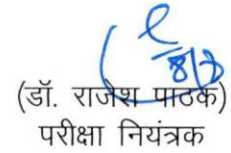 (डॉ. राजेश पाठक)
परीक्षा नियंत्रक